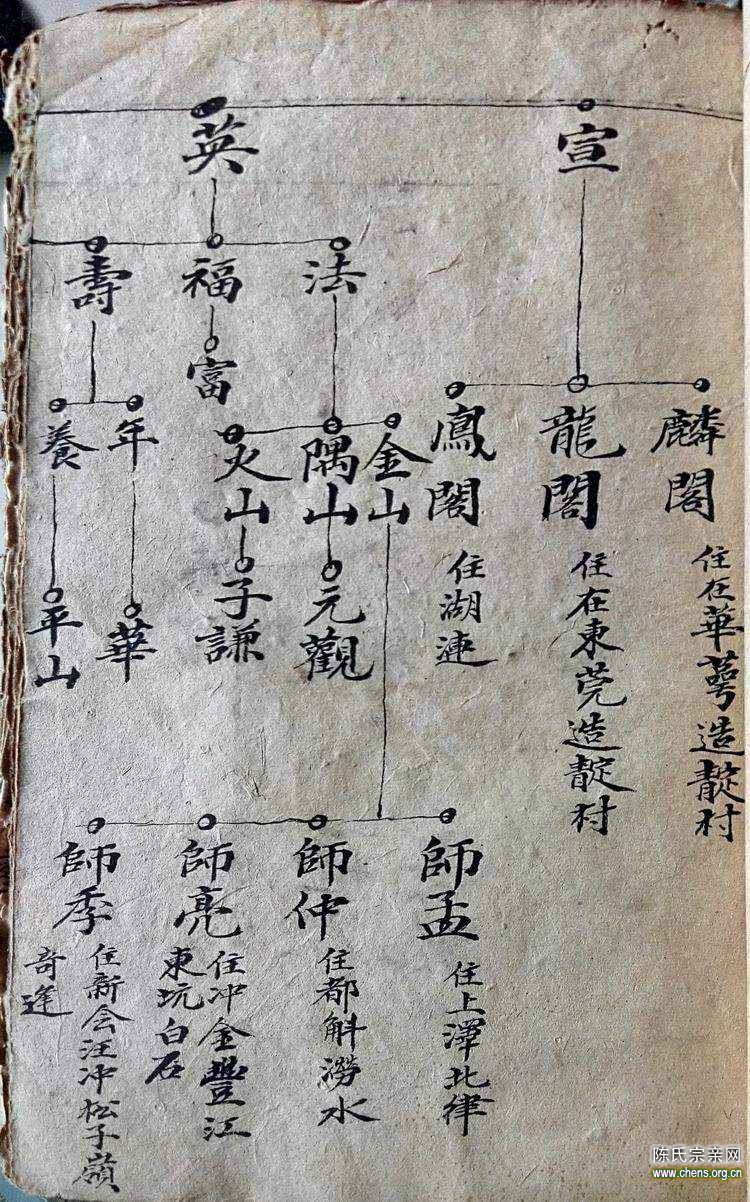 宣
英
麟閣
住在華萼造靛村
龍閣
住在東莞造靛村
鳳閣
住湖連
法
福
壽
富
金山
隅山
火山
元觀
子謙
年
養
華
平山
師孟
住上澤北律
師仲
住都斛澇水
師亮
住冲金豐江
東坑白石
師季
住新会汪冲松子嶺
奇逢
陈氏宗亲网
www.chens.org.cn